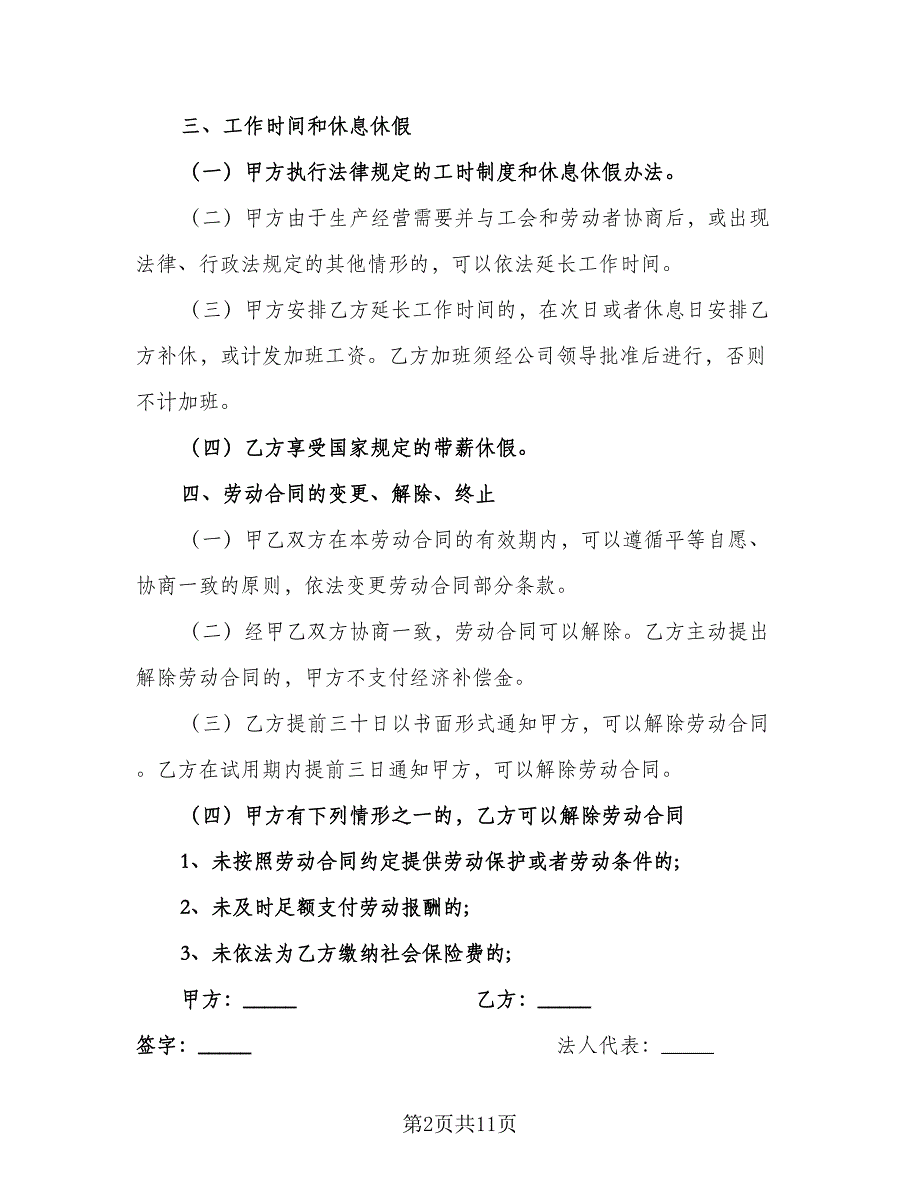 三、工作时间和休息休假
（一）甲方执行法律规定的工时制度和休息休假办法。
（二）甲方由于生产经营需要并与工会和劳动者协商后，或出现
法律、行政法规定的其他情形的，可以依法延长工作时间。
（三）甲方安排乙方延长工作时间的，在次日或者休息日安排乙
方补休，或计发加班工资。乙方加班须经公司领导批准后进行，否则
不计加班。
（四）乙方享受国家规定的带薪休假。
四、劳动合同的变更、解除、终止
（一）甲乙双方在本劳动合同的有效期内，可以遵循平等自愿、
协商一致的原则，依法变更劳动合同部分条款。
（二）经甲乙双方协商一致，劳动合同可以解除。乙方主动提出
解除劳动合同的，甲方不支付经济补偿金。
（三）乙方提前三十日以书面形式通知甲方，可以解除劳动合同
。乙方在试用期内提前三日通知甲方，可以解除劳动合同。
（四）甲方有下列情形之一的，乙方可以解除劳动合同
1、未按照劳动合同约定提供劳动保护或者劳动条件的;
2、未及时足额支付劳动报酬的;
3、未依法为乙方缴纳社会保险费的;
甲方：_____ 乙方：_____
签字：_____ 法人代表：_____
第2页共11页